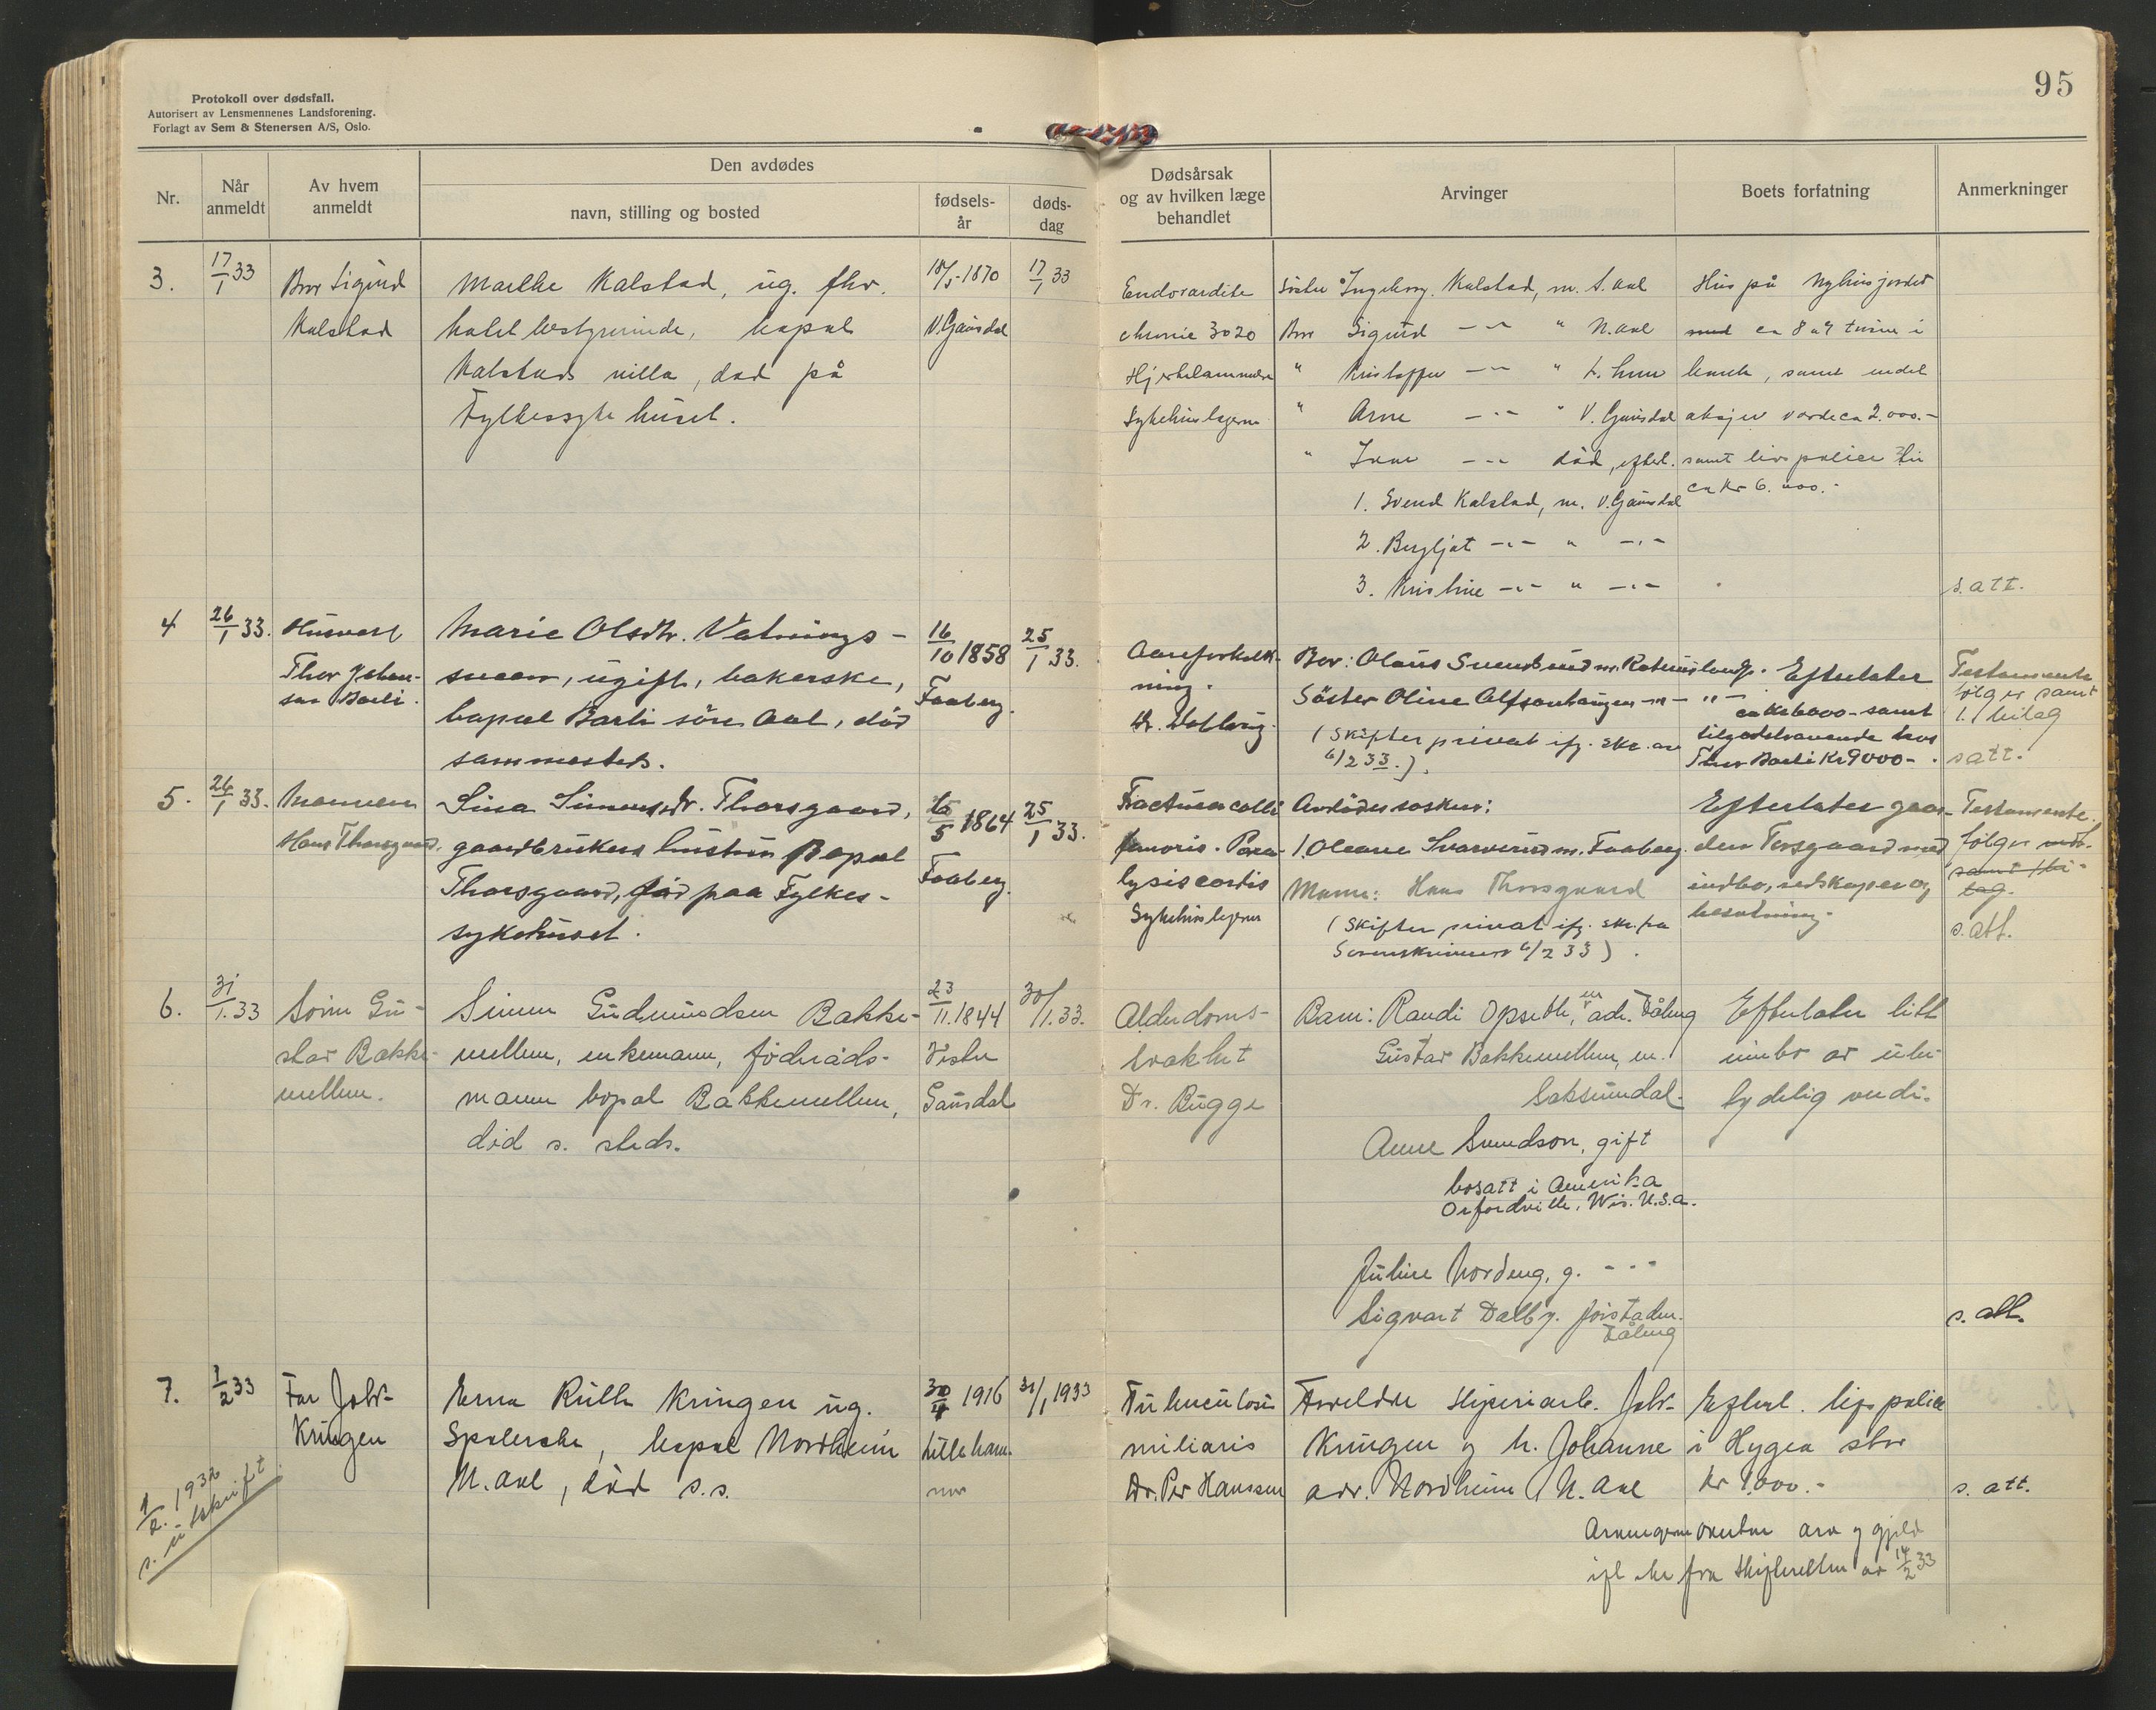 95
Protokoll over dødsfall.
Autorisert av Lensmennenes Landsforening.
Forlagt av Sem & Stenersen A/S, Oslo.
Nr.
Når anmeldt
Av hvem anmeldt
Den avdødes
navn, stilling og bosted
fødselsår
dødsdag
Dødsårsak og av hvilken læge behandlet
Arvinger
Boets forfatning
Anmerkninger
3.
17/1 33
Bror Sigurd
Kalstad
Marthe Kalstad, ug. fhv.
hotelbestyrerinde, bopæl
Kalstads villa, død på
Fylkessykehuset.
18/5-1870
V. Gausdal
17/1 33
Endocardite
chronic 3020
Sykehuslegerne
Søster Ingeborg Kalstad, m. S. Aal
Bror Sigurd -"- " N. Aal
" Kristoffer -"- " L.hmr
" Arne -"- " V. Gausdal
" Ivar -"- død, efterl.
1. Svend Kalstad, m. V. Gausdal
2. Bergljot -"- " -"-
3. Kristine -"- " -"-
Hus på Nyhusjordet
med ca 8 a 9 tusen i
bank, samt endel
aksjer verde ca 2.000.-
samt livspolice
ca kr 6.000.-
s. att.
4
26/1 33.
Husvert
Thor Johan-
sen Barli.
Marie Olsdtr. Vatnings-
sveen, ugift, bakerske,
bopæl Barli søre Aal, død
sammesteds.
16/10 1858
Faaberg.
25/1 33.
Aareforkalk-
ning.
Bror: Olaus Svendsrud m.
Søster Oline Alfsonhaugen -"- -"-
(Skifter privat ifg. skr. av
6/2 33.).
Efterlater
ca kr 6000- samt
tilgodehavende hos
Thor Barli Kr 9000-.
Testamente
følger samt
1. / bilag
s att.
5.
26/1 33.
Mannen
Hans Thorsgaard.
Lina Simensdr. Thorsgaard,
gaardbrukers hustru Bopæl
Thorsgaard, død paa Fylkes-
sykehuset.
5 1864
Faaberg.
25/1 33.
Fractura colli
femoris. Para-
lysis cordis
Sykehuslegerne
Avdødes søsken:
1. Oleane Svarverud m. Faaberg.
Mann: Hans Thorsgaard
(Skifter privat ifg. skr. fra
Sorenskriveren 6/2 33).
Efterlater gaar-
den Torsgaard med
indbo, redskaper og
besetning.
Testamente.
følger med.
samt 1 bi-
lag.
s. att.
6.
31/1. 33
Sønn Gu-
stav Bakke-
mellem.
Simen Gudmundsen Bakke-
mellem, enkemann, föderåds-
mann bopæl Bakkemellem,
död s. steds.
23/11. 1844
Vestre
Gausdal
30/1. 33.
Alderdoms-
svakhet
Dr. Bugge
Barn: Randi Opseth, m adr. Fåberg
Gustav Bakkemellem, m.
Saksumdal.
Anne Svendson, gift
bosatt i Amerika
Orfordville, Wis. U.S.A.
Juline Nordeng, g. - " -
Sigvart Dalby. Jørstadm.
Fåberg
Efterlater litt
innbo av ube-
tydelig verdi.
s. att.
7.
1/2 33
Far Johs
Kringen
Erna Ruth Kringen ug.
Spolerske, bopæl Nordheim
N. Aal, död s.s.
30/4 1916
Lilleham-
mer
31/1 1933
Tuberculosis
miliaris
Dr. Per Hanssen
Foreldre Johs.
Kringen og h. Johanne
adr. Nordheim N. Aal
Efterl. livspolice
i Hygea stor
kr 1.000.-
Arvingerne overtar arv og gjeld
ifl skr fra Skifteretten av 14/2 33
s. att.
1/2. 1932
s. utskrift